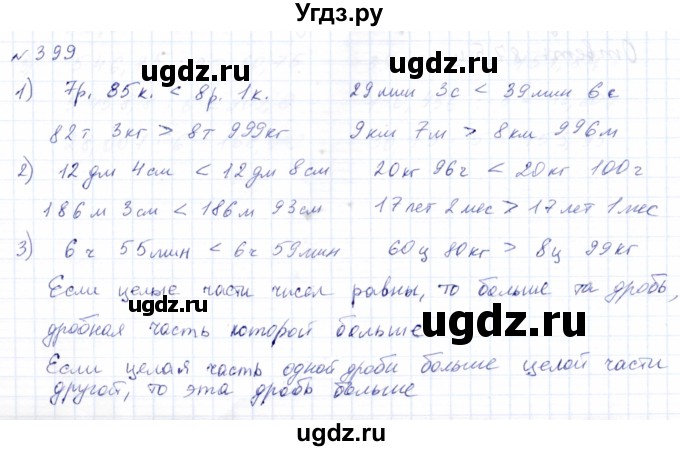 Угдз.ру
№ 399
ugdz.ru
ugdz.ru
1) 7р. 85к. < 8р. 1к. 29мин 3с < 39мин 6с
82т 3кг > 8т 999кг 9км 7м > 8км 996м
2) 12дм 4см < 12дм 8см 20кг 96г < 20кг 100г
186м 3см < 186м 93см 17лет 2мес > 17лет 1мес
3) 6ч 55мин < 6ч 59мин 60ц 80кг > 8ц 99кг
Если целые части чисел равны, то больше та дробь,
ugdz.ru
ugdz.ru
дробная часть которой больше
Если целая часть одной дроби больше целой части
другой, то эта дробь больше
ugdz.ru